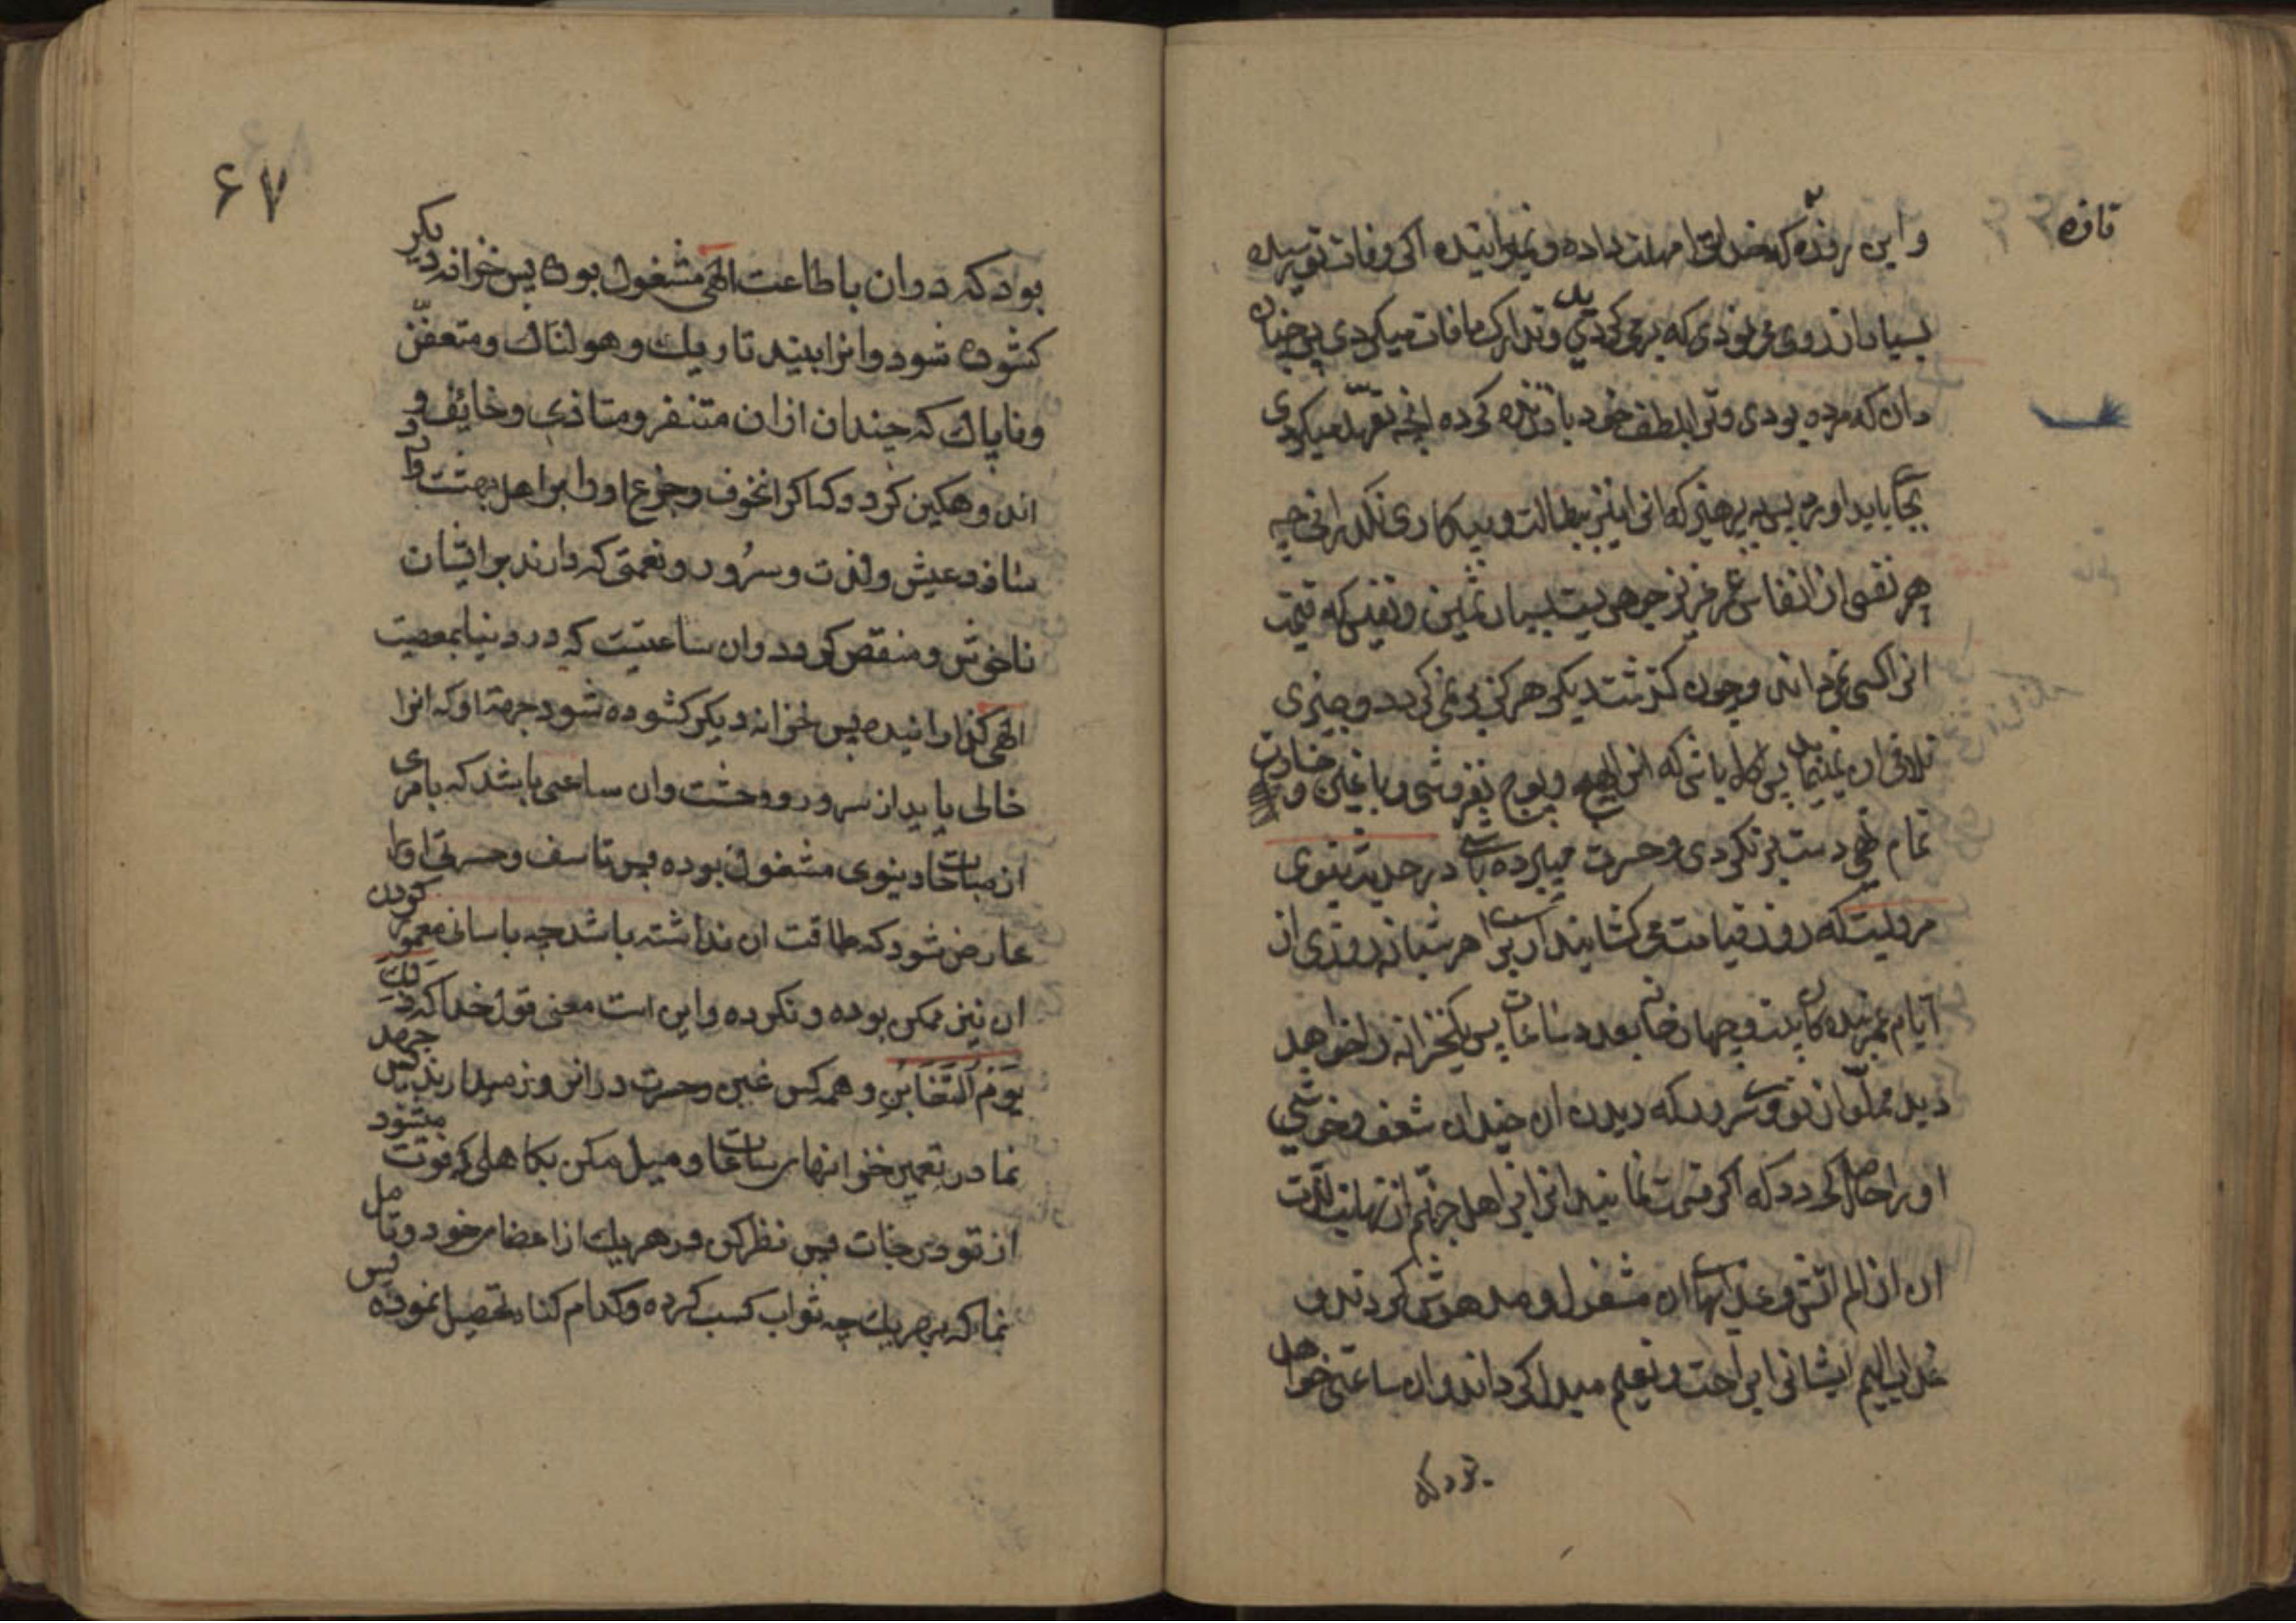 تازه
و این روزه که خدا ترا مهلت داده و نمیرانیده اگر وفات تو رسیده
بسیار ارزوی می نودی که برمی کردیدی و تدارک مافات میکردی پس چنان
دان که مرده بودی و ترا بلطف خود باز زنده کرده انچه تعهد میکردی
بجا باید اورد پس بپرهیز که انرا نیز ببطالت و بیکاری نگذرانی چه
هر نفسی از انفاس عمر عزیز جوهریست بسیار ثمین و نفیس که قیمت
انرا کسی نمیداند و چون کذشت دیکر هرکز بر نمی کردد و چیزی
تلافی ان نمینماید پس کاه باش که انرا بهیچ و پوچ نفروشی و با غبن و خسارت
تمام تهی دست بر نکردی و حسرت میبرده باشی در حدیث نبوی
مرویست که روز قیامت می کشایند از برای هر شبانه روزی از
ایام عمر بنده بیست و چهار خانه بعدد ساعات پس یکخزانه را خواهد
دید مملو از نور و سرور که دیدن ان چندان شعف و خوشی
او را حاصل کردد که اکر قسمت نمایند انرا بر اهل جهنم از نهایت لذت
ان از الم اتش و عذابهای ان مشغول و مدهوش کردند و
عذاب الیم ایشانرا براحت و نعیم مبدل کرداند و ان ساعتی خواهد
بود که
۶۷
بود که دران باطاعت الهی مشغول بوده پس خزانه دیکر
کشوده شود و انرا ببیند تاریک و هولناک و متعفن
و ناپاک که چندان ازان متنفر و متاذی و خائف و
اندوهکین کردد که اکر انخوف و جزع او را بر اهل بهشت وارد
سازند عیش و لذت و سرور و نعمتی که دارند بر ایشان
ناخوش و منقص کردد وان ساعتیست که در دنیا بمعصیت
الهی کذرانیده پس خزانه دیکر کشوده شود جهة او که انرا
خالی یابد از سرور و وحشت وان ساعتی باشد که بامری
از مباحات دنیوی مشغول بوده پس تاسف و حسرتی او را
عارض شود که طاقت ان نداشته باشد چه باسانی معمور کردن
ان نیز ممکن بوده و نکرده و این است معنی قول خدا که ذٰلِکَ
یَوْمُ التَّغَابُنِ و همه کس غبن و حسرت در انروز میدارند پس جهد
نما در تعمیر خزانهای ساعات و میل مکن بکاهلی که فوت میشود
از تو درجات پس نظر کن در هریک از اعضای خود و تامل
نما که بهریک چه ثواب کسب کرده و کدام کناه تحصیل نموده پس